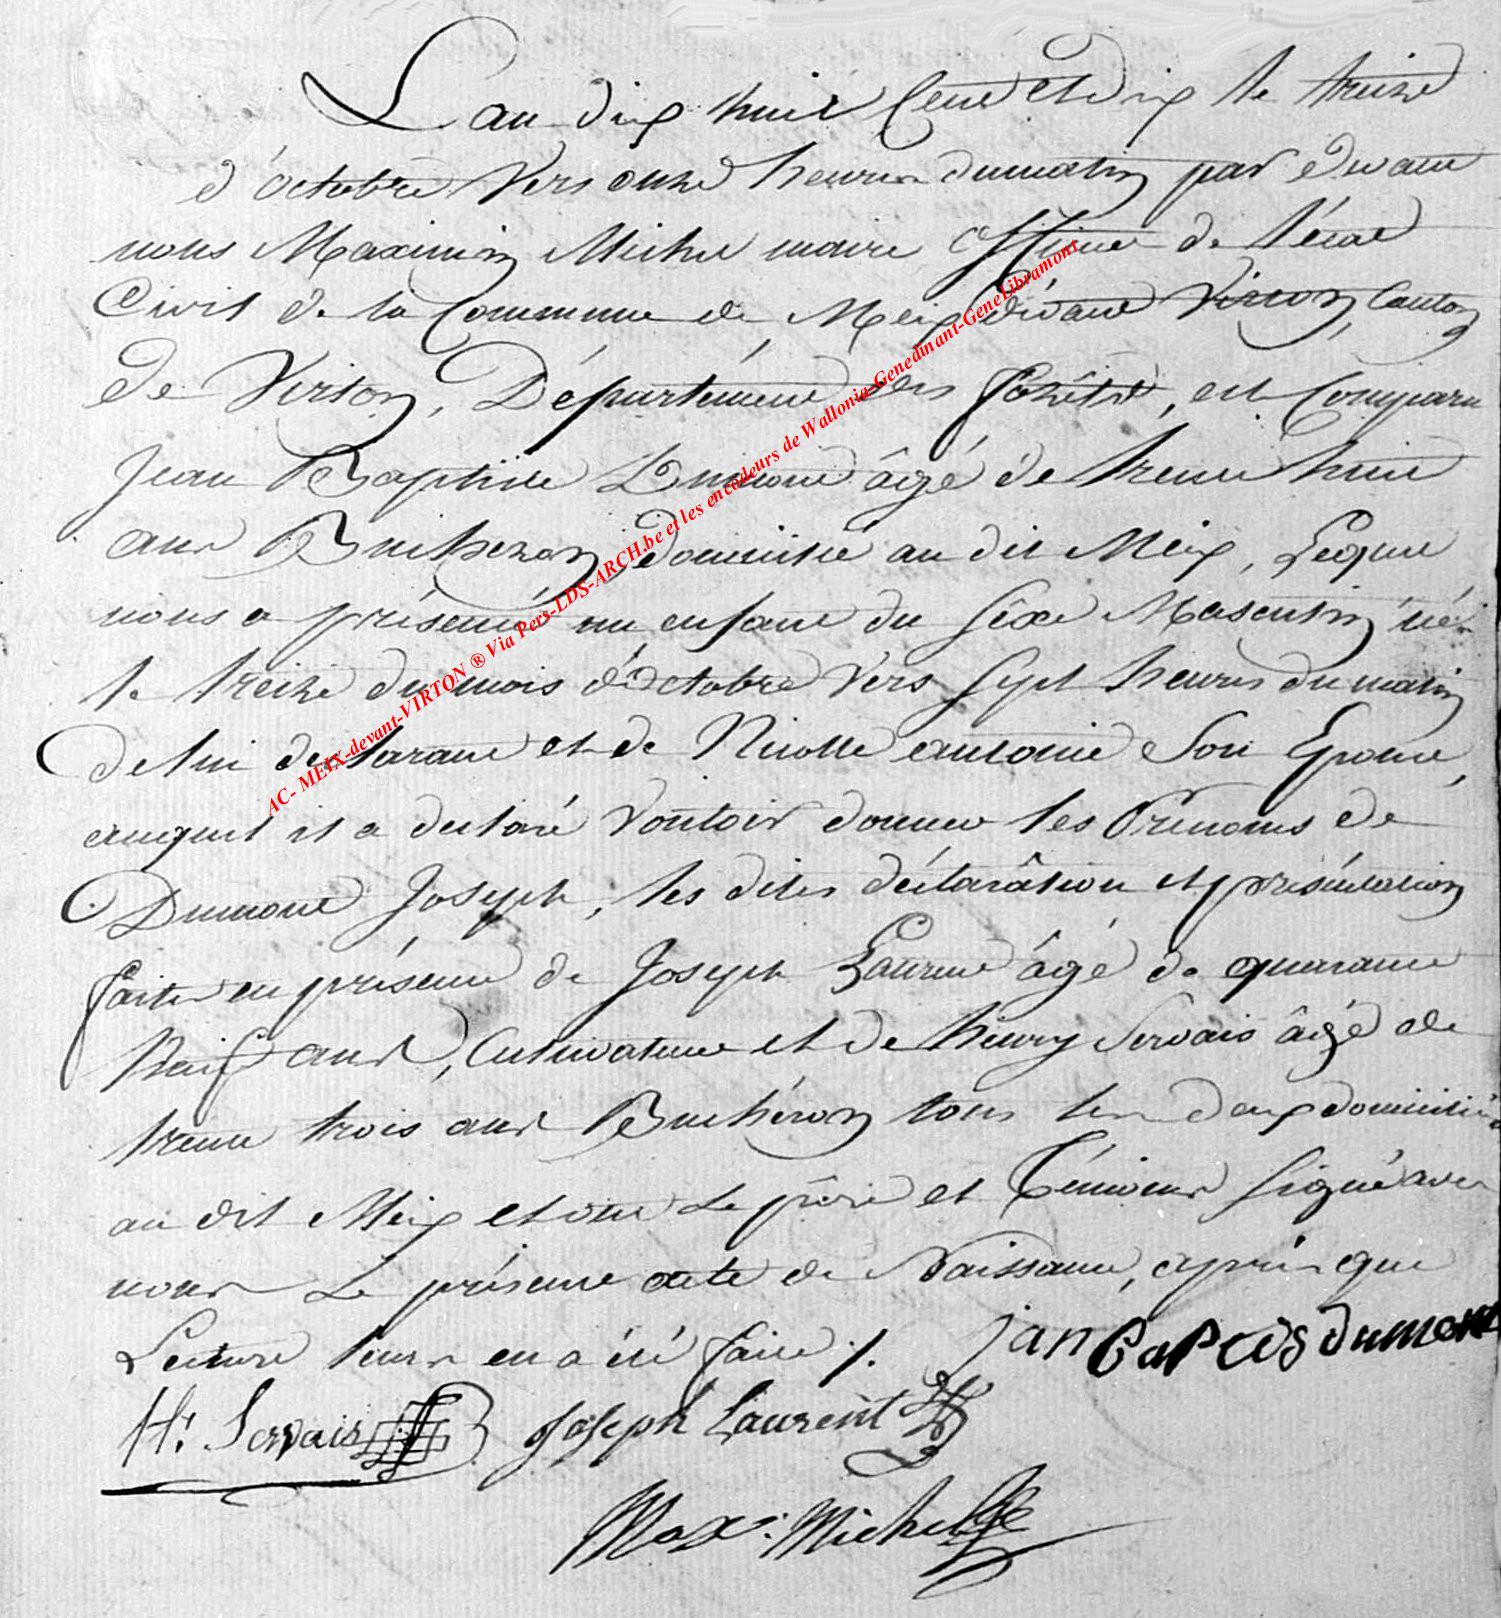 L'an dix huit Cent et dix le treize
d'octobre vers onze heures du matin par devant
nous Maximin Michel maire officier de l'état
Civil de la Commune de Meix devant Virton, Canton
de Virton, Département des forêts, est Comparu
Jean Baptiste Dumont âgé de trente huit
ans Bucheron domicilié au dit Meix, Lequel
nous a présenté un enfant du sexe Masculin né
le treize du mois d'octobre vers sept heures du matin
de lui declarant et de Nicolle antoine Son Epouse,
auquel il a declaré vouloir donner les Prénoms de
Dumont Joseph, les dites déclarâtion et présentation
faites en présence de Joseph Laurent âgé de quarante
Neuf ans, Cultivateur et de henry Servais âgé de
trente trois ans Buchéron tous les deux domiciliés
au dit Meix et ont le père et Témoins signé avec
nous Le présent acte de Naissance, après que
Lecture leurs en a été faite /. jan baptis dumont
H: Servais Joseph Laurent
Max: Michel
AC- MEIX-devant-VIRTON ® Via Pers-LDS-ARCH.be et les encodeurs de Wallonia-Genedinant-GeneLibramont